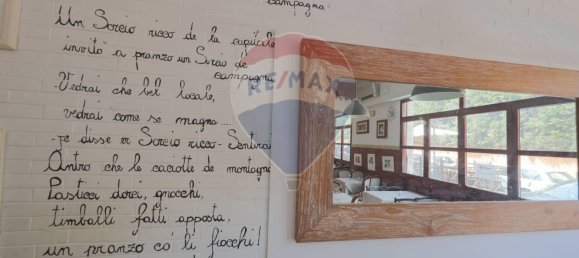 campagna!
Un Sorcio ricco de la capitale
invitò a pranzo un Sorcio de
campagna
-Vedrai che bel locale,
vedrai come se magna...
-je disse er Sorcio ricco- Sentirai
Antro che le caciotte de montagna
Pasticci dorci, gnocchi,
timballi fatti apposta,
un pranzo co' li fiocchi!
RE/MAX